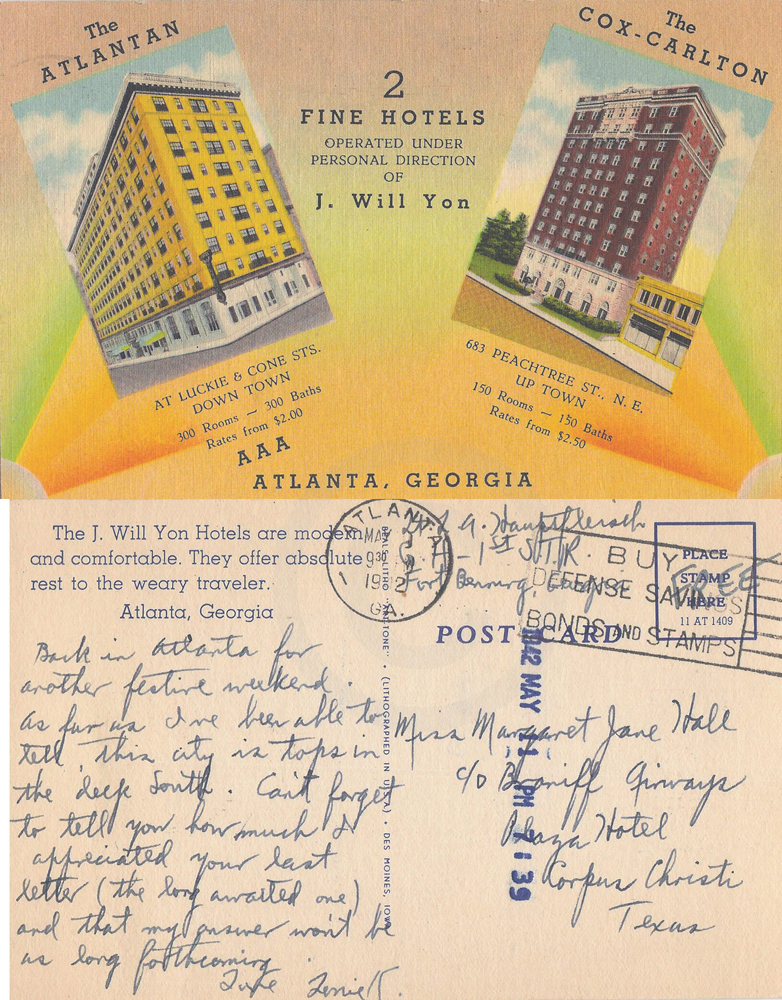 The
ATLANTAN
The
COX-CARLTON
2
FINE HOTELS
OPERATED UNDER
PERSONAL DIRECTION
OF
J. Will Yon
AT LUCKIE & CONE STS.
DOWN TOWN
300 Rooms — 300 Baths
Rates from $2.00
AAA
683 PEACHTREE ST., N. E.
UP TOWN
150 Rooms — 150 Baths
Rates from $2.50
ATLANTA, GEORGIA
The J. Will Yon Hotels are modern
and comfortable. They offer absolute
rest to the weary traveler.
Atlanta, Georgia
Back in Atlanta for
another festive weekend.
As far as I've been able to
tell, this city is tops in
the deep South. Can't forget
to tell you how much I
appreciated your last
letter (the long awaited one)
and that my answer won't be
as long forthcoming.
ATLANTA
MAY
930
1942
GA.
(LITHOGRAPHED IN U. S. A.) • DES MOINES, IOWA
Hauptfleisch
1ST S.T.R.
Fort Benning, Georgia
BUY
DEFENSE SAVINGS
BONDS AND STAMPS
PLACE
STAMP
HERE
11 AT 1409
FREE
POST CARD
1942 MAY 11 PM 7:39
Miss Margaret Jane Hall
c/o Braniff Airways
Plaza Hotel
Corpus Christi
Texas